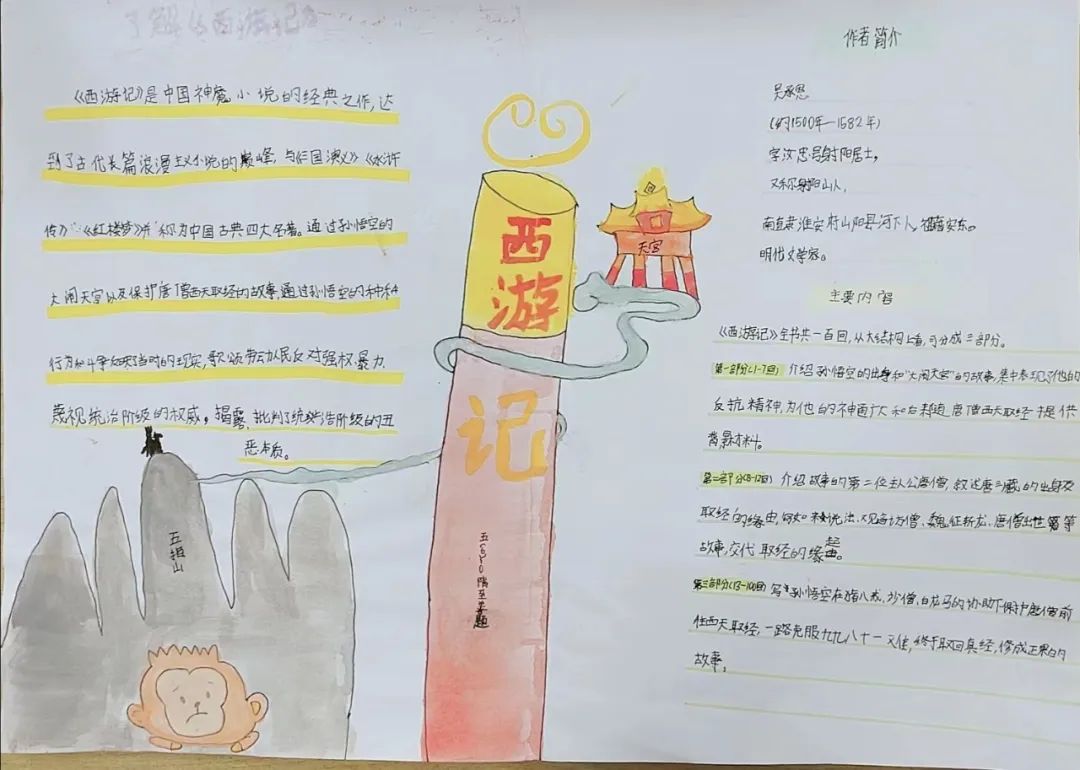 了解西游记
《西游记》是中国神魔小说的经典之作,达
到了古代长篇浪漫主义小说的巅峰,与《三国演义》《水浒
传》《红楼梦》并称为中国古典四大名著。通过孙悟空的
大闹天宫以及保护唐僧西天取经的故事,通过孙悟空的种种
行为和斗争反映了当时的现实,歌颂劳动人民反对强权、暴力
蔑视统治阶级的权威。揭露、批判了统治阶级的丑
恶本质。
五指山
西
游
记
天宫
作者简介
吴承恩
(约1500年—1582年)
字汝忠号射阳居士,
又称射阳山人,
南直隶淮安府山阳县河下人,祖籍安东。
明代文学家。
主要内容
《西游记》全书共一百回,从大结构上看,可分成三部分。
第一部分(1-7回) 介绍孙悟空的出身和“大闹天宫”的故事,集中表现了他的
反抗精神,为他的神通广大和后来随唐僧西天取经提供
背景材料。
第二部分(8-12回) 介绍故事的第二位主人公唐僧,叙述唐三藏的出身及
取经的缘由,例如说法、观音访僧、魏征斩龙、唐僧出世等
故事,交代取经的缘起由。
第三部分(13-100回) 写孙悟空在猪八戒、沙僧、白龙马的协助下保护唐僧前
往西天取经,一路克服九九八十一难,终于取回真经,修成正果的
故事。